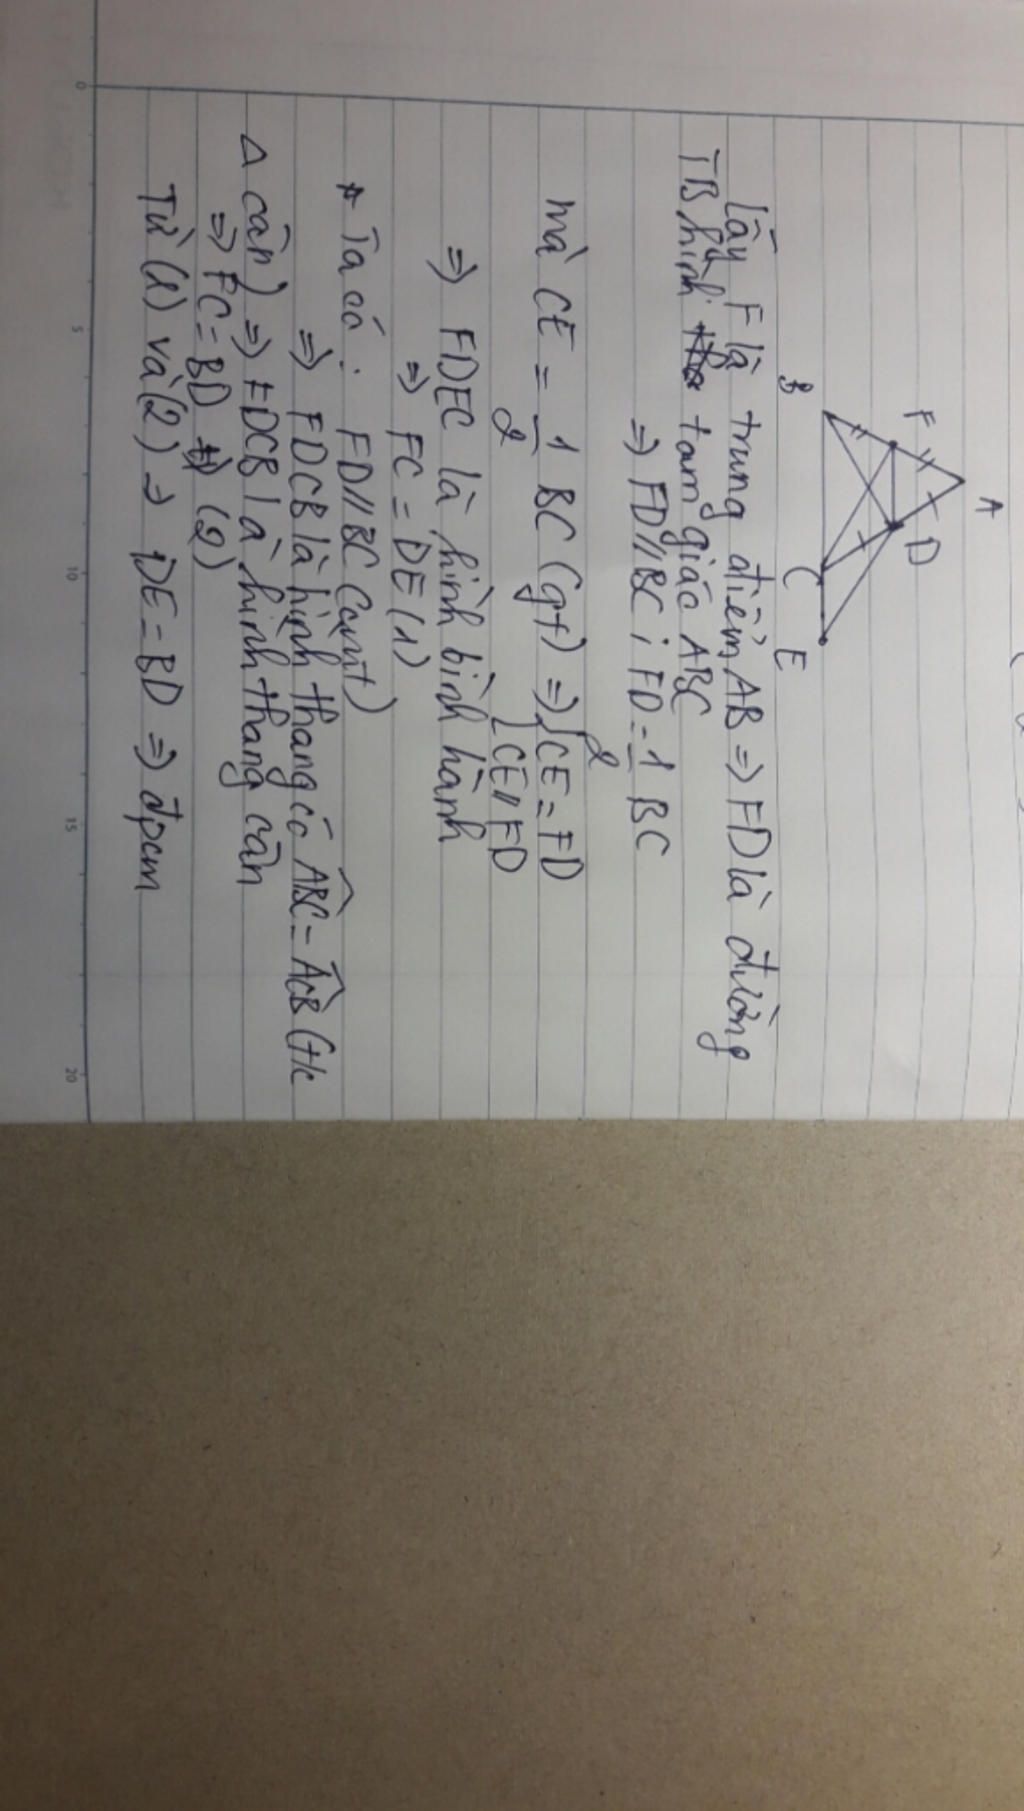 A
F
D
B
C
E
Lấy F là trung điểm AB => FD là đường
TB hình tam giác ABC
=> FD//BC; FD = 1/2 BC
mà CE = 1/2 BC (gt) => { CE = FD
CE // FD
=> FDEC là hình bình hành
=> FC = DE (1)
* Ta có: FD//BC (cmt)
=> FDCB là hình thang có ABC = ACB (t/c
Δ cân) => FDCB là hình thang cân
=> FC = BD (2)
Từ (1) và (2) => DE = BD => đpcm
0
5
10
15
20